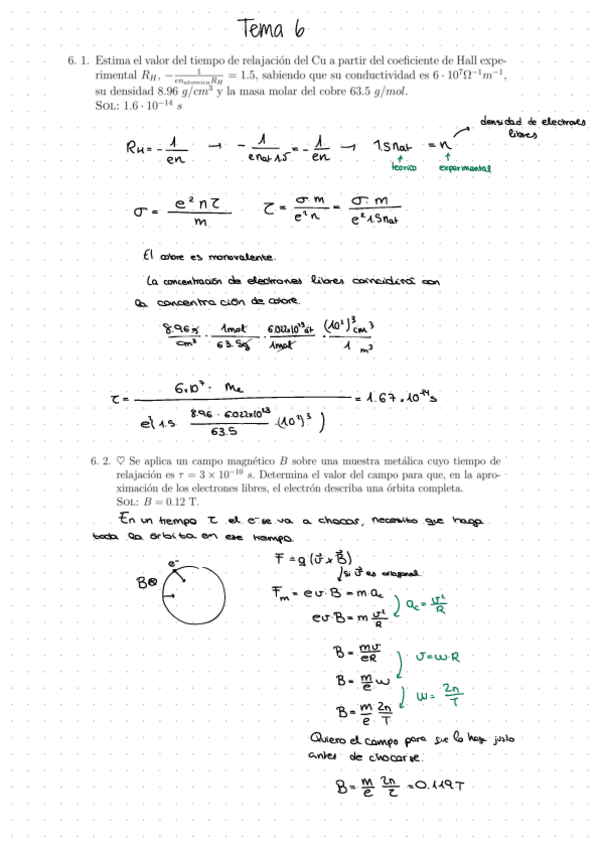 Tema 6
6. 1. Estima el valor del tiempo de relajación del Cu a partir del coeficiente de Hall expe-
rimental R_H, −1/(en_atomica R_H) = 1.5, sabiendo que su conductividad es 6 · 10⁷Ω⁻¹m⁻¹,
su densidad 8.96 g/cm³ y la masa molar del cobre 63.5 g/mol.
Sol: 1.6 · 10⁻¹⁴ s
densidad de electrones
libres
R_H = - 1/en → - 1/(e nat 1.5) = - 1/en → 1.5 nat = n
↑ teórico ↑ experimental
σ = e² n τ / m τ = σ · m / e² n = σ · m / e² 1.5 nat
El cobre es monovalente.
La concentración de electrones libres coincidirá con
la concentración de cobre.
8.96 g/cm³ · 1 mol/63.5 g · 6.022x10²³ at/1 mol · (10²)³ cm³/1 m³
τ = 6·10⁷ · me / e² (1.5 · 8.96 · 6.022x10²³/63.5 · (10²)³) = 1.67 · 10⁻¹⁴ s
6. 2. ♡ Se aplica un campo magnético B sobre una muestra metálica cuyo tiempo de
relajación es τ = 3 × 10⁻¹⁰ s. Determina el valor del campo para que, en la apro-
ximación de los electrones libres, el electrón describa una órbita completa.
Sol: B = 0.12 T.
En un tiempo τ el e⁻ se va a chocar, necesito que haga
toda la órbita en ese tiempo.
F = q (v⃗ x B⃗)
si v⃗ es ortogonal
e⁻
B⊗
Fm = e v · B = m · ac
ac = v²/R
e v · B = m v²/R
B = mv/eR
v = ω · R
B = m/e ω
ω = 2π/T
B = m/e 2π/T
Quiero el campo para que lo haga justo
antes de chocarse.
B = m/e 2π/τ = 0.119 T